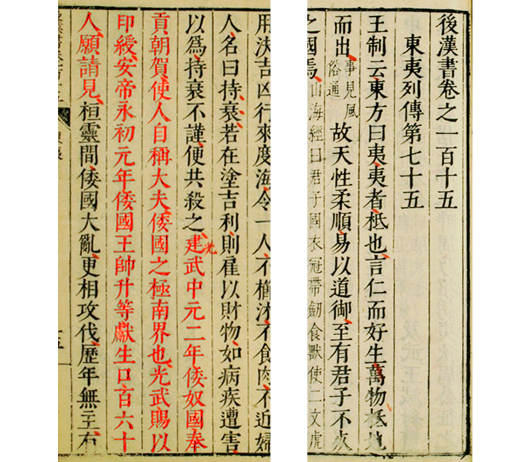 後漢書卷之一百十五
東夷列傳第七十五
王制云東方曰夷夷者柢也言仁而好生萬物柢地
而出事見風俗通故天性柔順易以道御至有君子不死
之國焉山海經曰君子國衣冠帶劒食獸使二文虎
用決吉凶行來度海令一人不櫛沐不食肉不近婦
人名曰持衰若在塗吉利則雇以財物如病疾遭害
以爲持衰不謹便共殺之建武中元二年倭奴國奉
光
貢朝賀使人自稱大夫倭國之極南界也光武賜以
印綬安帝永初元年倭國王帥升等獻生口百六十
人願請見桓靈間倭國大亂更相攻伐歷年無主有